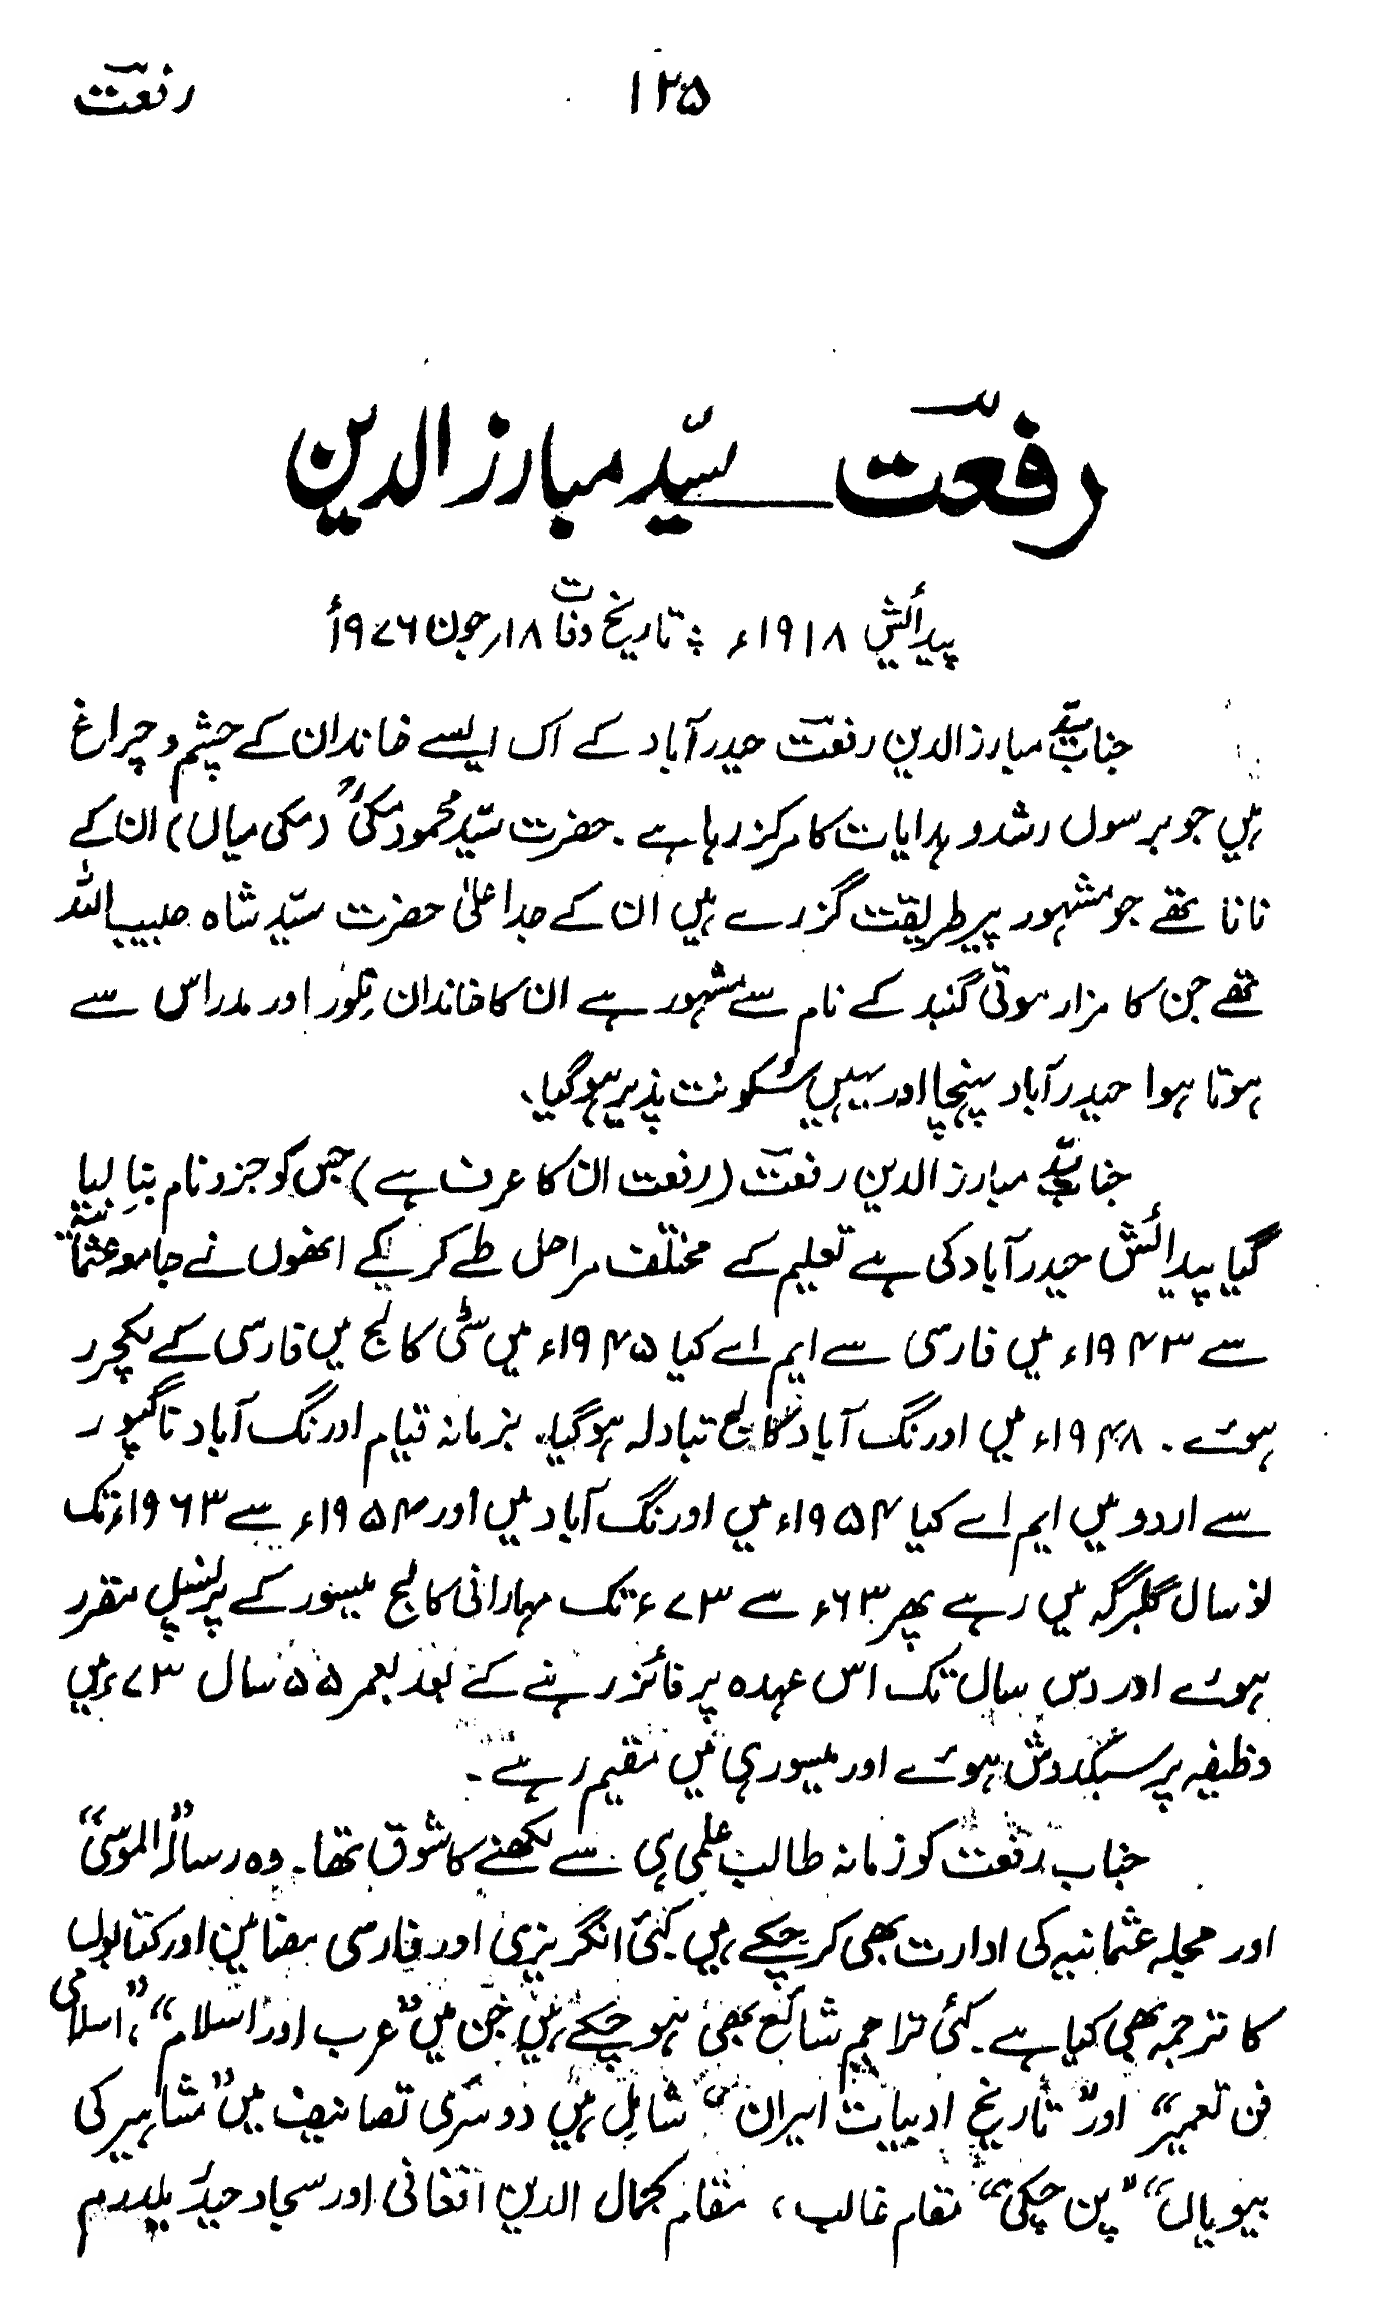 رفعت ۱۲۵
رفعت سیّد مبارز الدین
پیدائش ۱۹۱۸ء ؛ تاریخ وفات ۱۸ر جون ۱۹۷۶ء
جناب سیّد مبارز الدین رفعت حیدرآباد کے اک ایسے خاندان کے چشم و چراغ
ہیں جو برسوں رشد و ہدایات کا مرکز رہا ہے ۔ حضرت سیّد محمود مکیؒ (مکی میاں) ان کے
نانا تھے جو مشہور پیر طریقت گزرے ہیں ان کے جد اعلیٰ حضرت سیّد شاہ حبیب اللہ
تھے جن کا مزار موتی گنبد کے نام سے مشہور ہے ان کا خاندان ویلور اور مدراس سے
ہوتا ہوا حیدرآباد پہنچا اور یہیں سکونت پذیر ہو گیا ۔
جناب سیّد مبارز الدین رفعت (رفعت ان کا عرف ہے) جس کو جزو نام بنا لیا
گیا پیدائش حیدرآباد کی ہے تعلیم کے مختلف مراحل طے کر کے انھوں نے جامعہ عثمانیہ
سے ۱۹۴۳ء میں فارسی سے ایم اے کیا ۱۹۴۵ء میں سٹی کالج میں فارسی کے لکچرر
ہوئے ۔ ۱۹۴۸ء میں اورنگ آباد کالج تبادلہ ہو گیا ۔ بزمانہ قیام اورنگ آباد ناگپور
سے اردو میں ایم اے کیا ۱۹۵۴ء میں اورنگ آباد میں اور ۱۹۵۴ء سے ۱۹۶۳ء تک
نو سال گلبرگہ میں رہے پھر ۶۳ء سے ۷۳ء تک مہارانی کالج میسور کے پرنسپل مقرر
ہوئے اور دس سال تک اس عہدہ پر فائز رہنے کے بعد بعمر ۵۵ سال ۷۳ء میں
وظیفہ پر سبکدوش ہوئے اور میسور ہی میں مقیم رہے ۔
جناب رفعت کو زمانہ طالب علمی ہی سے لکھنے کا شوق تھا ۔ وہ رسالہ "الموسیٰ"
اور مجلہ عثمانیہ کی ادارت بھی کر چکے ہیں کئی انگریزی اور فارسی مضامین اور کتابوں
کا ترجمہ بھی کیا ہے ۔ کئی تراجم شائع بھی ہو چکے ہیں جن میں "عرب اور اسلام"، "اسلامی
فن تعمیر" اور "تاریخ ادبیات ایران" شامل ہیں دوسری تصانیف میں "مشاہیر کی
بیویاں" "پن چکی" مقام غالب ، مقام جمال الدین افغانی اور سجاد حیدر یلدرم